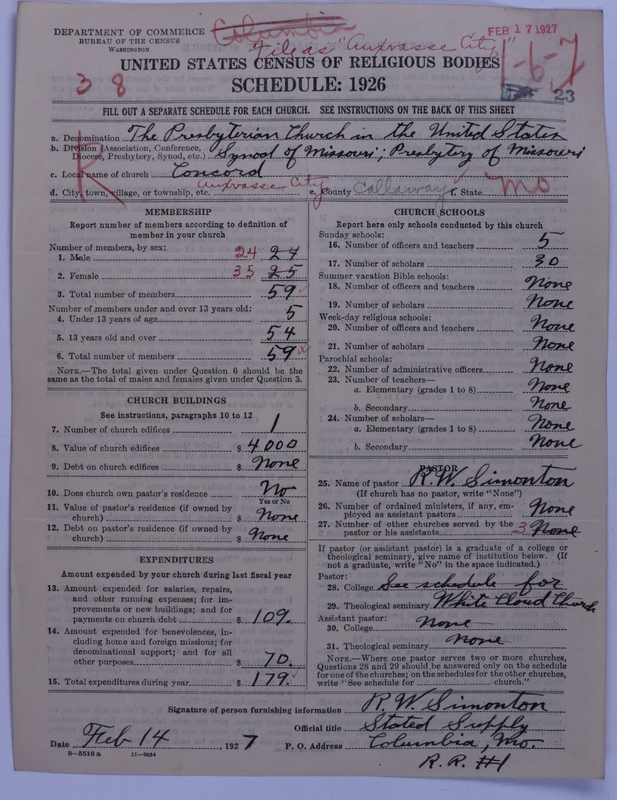 DEPARTMENT OF COMMERCE
BUREAU OF THE CENSUS
WASHINGTON
Columbia
File as "Auxvasse City"
FEB 17 1927
1-6-7
UNITED STATES CENSUS OF RELIGIOUS BODIES
3 8
SCHEDULE: 1926
23
FILL OUT A SEPARATE SCHEDULE FOR EACH CHURCH. SEE INSTRUCTIONS ON THE BACK OF THIS SHEET
R
a. Denomination The Presbyterian Church in the United States
b. Division (Association, Conference, Diocese, Presbytery, Synod, etc.) Synod of Missouri; Presbytery of Missouri
c. Local name of church Concord
d. City, town, village, or township, etc. Auxvasse City e. County Callaway f. State Mo
MEMBERSHIP
Report number of members according to definition of member in your church
Number of members, by sex:
1. Male 24 24
2. Female 35 25
3. Total number of members 59
Number of members under and over 13 years old:
4. Under 13 years of age 5
5. 13 years old and over 54
6. Total number of members 59
NOTE.—The total given under Question 6 should be same as the total of males and females given under Question 3.
CHURCH BUILDINGS
See instructions, paragraphs 10 to 12
7. Number of church edifices 1
8. Value of church edifices $ 4000
9. Debt on church edifices $ None
10. Does church own pastor's residence No
Yes or No
11. Value of pastor's residence (if owned by church) $ None
12. Debt on pastor's residence (if owned by church) $ None
EXPENDITURES
Amount expended by your church during last fiscal year
13. Amount expended for salaries, repairs, and other running expenses; for improvements or new buildings; and for payments on church debt $ 109.
14. Amount expended for benevolences, including home and foreign missions; for denominational support; and for all other purposes $ 70.
15. Total expenditures during year $ 179.
CHURCH SCHOOLS
Report here only schools conducted by this church
Sunday schools:
16. Number of officers and teachers 5
17. Number of scholars 30
Summer vacation Bible schools:
18. Number of officers and teachers None
19. Number of scholars None
Week-day religious schools:
20. Number of officers and teachers None
21. Number of scholars None
Parochial schools:
22. Number of administrative officers None
23. Number of teachers—
a. Elementary (grades 1 to 8) None
b. Secondary None
24. Number of scholars—
a. Elementary (grades 1 to 8) None
b. Secondary None
PASTOR
25. Name of pastor R. W. Simonton
(If church has no pastor, write "None")
26. Number of ordained ministers, if any, employed as assistant pastors None
27. Number of other churches served by the pastor or his assistants 3 None
If pastor (or assistant pastor) is a graduate of a college or theological seminary, give name of institution below. (If not a graduate, write "No" in the space indicated.)
Pastor:
28. College See schedule for
29. Theological seminary White Cloud Church
Assistant pastor:
30. College None
31. Theological seminary None
NOTE.—Where one pastor serves two or more churches, Questions 28 and 29 should be answered only on the schedule for one of the churches; on the schedules for the other churches, write "See schedule for ________ church."
Signature of person furnishing information R. W. Simonton
Official title Stated Supply
Date Feb 14 1927 P. O. Address Columbia, Mo.
R. R. #1
8—5518 a 11—9064